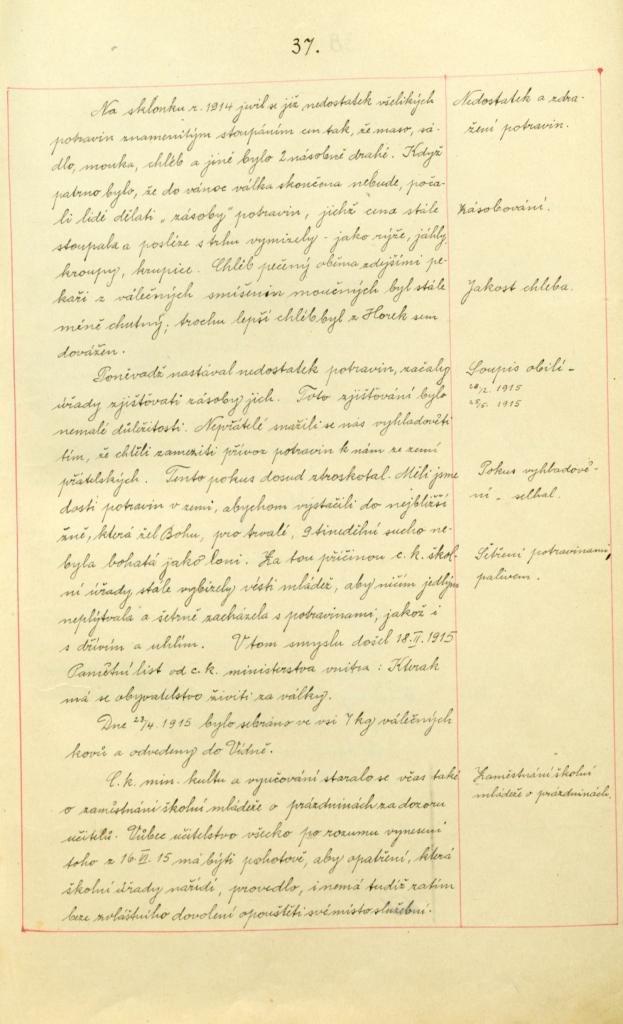 37.
Na sklonku r. 1914 jevil se již nedostatek všelikých
potravin znamenitým stoupáním cen tak, že maso, sá-
dlo, mouka, chléb a jiné bylo 2 násobně drahé. Když
patrno bylo, že do vánoc válka skončena nebude, poča-
li lidé dělati „zásoby" potravin, jichž cena stále
stoupala a posléze s trhu vymizely - jako rýže, jáhly,
kroupy, krupice. Chléb pečený oběma zdejšími pe-
kaři z válečných smíšenin moučných byl stále
méně chutný; trochu lepší chléb byl z Horek sem
dovážen.
Poněvadž nastával nedostatek potravin, začaly
úřady zjišťovati zásoby jich. Toto zjišťování bylo
nemalé důležitosti. Nepřátelé snažili se nás vyhladověti
tím, že chtěli zameziti přívoz potravin k nám ze zemí
přátelských. Tento pokus dosud ztroskotal. Měli jsme
dosti potravin v zemi, abychom vystačili do nejbližší
žně, která žel Bohu, pro trvalé, 9 tinedělní sucho ne-
byla bohatá jako loni. Za tou příčinou c. k. škol-
ní úřady stále vybízely vésti mládež, aby ničím jedlým
neplýtvala a šetrně zacházela s potravinami, jakož i
s dřívím a uhlím. V tom smyslu došel 18. II. 1915
Pamětní list od c. k. ministerstva vnitra: Kterak
má se obyvatelstvo živiti za války.
Dne 23/4. 1915 bylo sebráno ve vsi 7 kg válečných
kovů a odvedeny do Vídně.
C. k. min. kultu a vyučování staralo se včas také
o zaměstnání školní mládeže o prázdninách za dozoru
učitelů. Vůbec učitelstvo všecko po rozumu vynesení
toho z 16. VI. 15 má býti pohotově, aby opatření, která
školní úřady nařídí, provedlo, i nemá tudíž zatím
beze zvláštního dovolení opouštěti své místo služební.
Nedostatek a zdra-
žení potravin.
Zásobování.
Jakost chleba.
Soupis obilí -
1915
1915
Pokus vyhladově-
ní - selhal.
Šetření potravinami,
palivem.
Zaměstnání školní
mládeže o prázdninách.